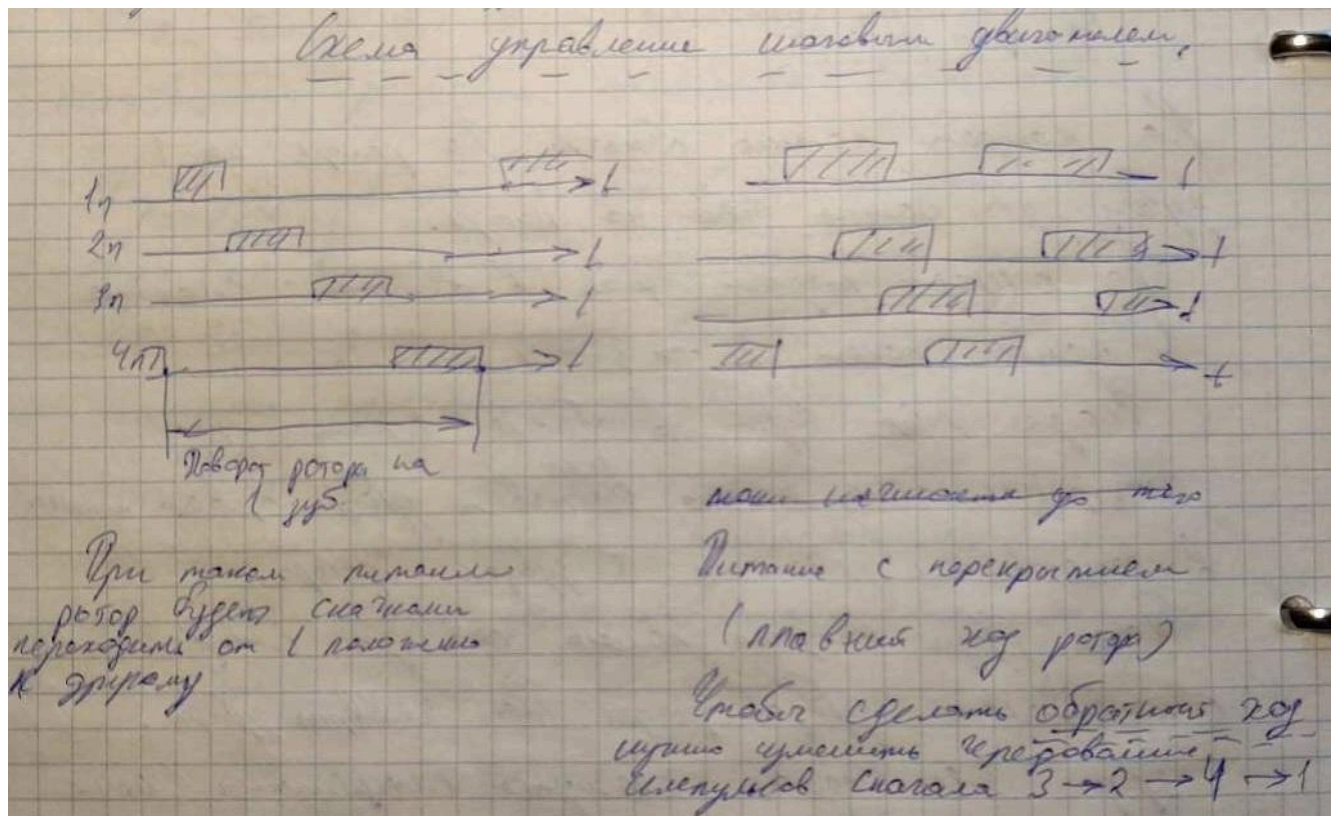 Схема управление шаговым двигателем,
1п
t
t
2п
t
t
3п
t
t
4п
t
t
Поворот ротора на
1 зуб.
При таком питании
ротор будет скачками
переходить от 1 положению
к другому
до того
Питание с перекрытием
(плавний ход ротора)
Чтобы сделать обратный ход
нужно изменить чередование
импульсов сначала 3 → 2 → 4 → 1